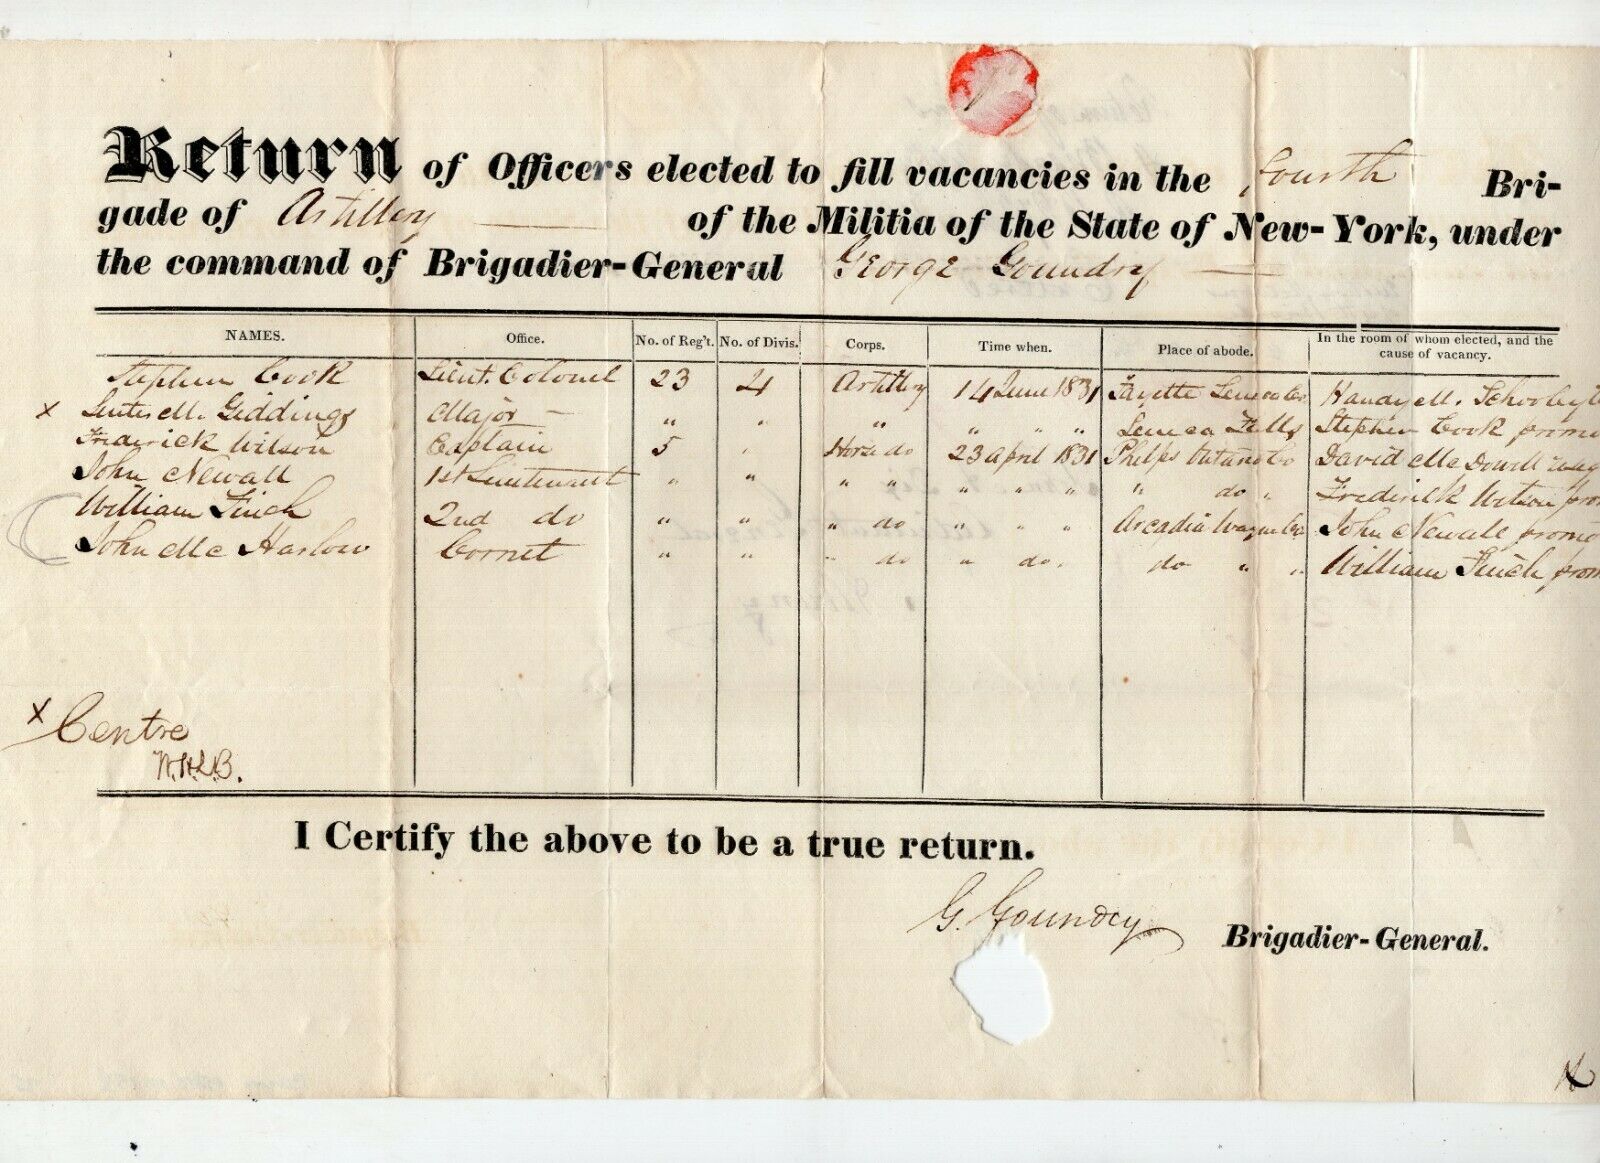 Return of Officers elected to fill vacancies in the Fourth Bri-
gade of Artillery of the Militia of the State of New-York, under
the command of Brigadier-General George Goundry
NAMES. Office. No. of Reg't. No. of Divis. Corps. Time when. Place of abode. In the room of whom elected, and the cause of vacancy.
Stephen Cook Lieut. Colonel 23 4 Artillery 14 June 1831 Fayette Seneca Co. Handy M. Schooley
x M. Giddings Major — " " " " " " Seneca Falls Stephen Cook promo
Frederick Wilson Captain 5 " Horse do 23 April 1831 Phelps Ontario Co David McDowell
John Newall 1st Lieutenant " " " " " " " " do " Frederick Wilson prom
William Finch 2nd do " " " do " " " Arcadia Wayne Co John Newall promo
John Mc Harlow Cornet " " " do " do. do " " William Finch prom
x Centre
W.H.L.B.
I Certify the above to be a true return.
G. Goundry Brigadier-General.